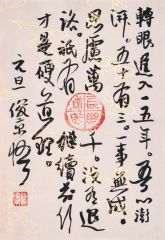 轉眼進入一五年。吾心澎
湃。五十有三。一事無成。
思慮萬千。沒有退
路。祇有繼續前行
才是硬道理。
元旦俊